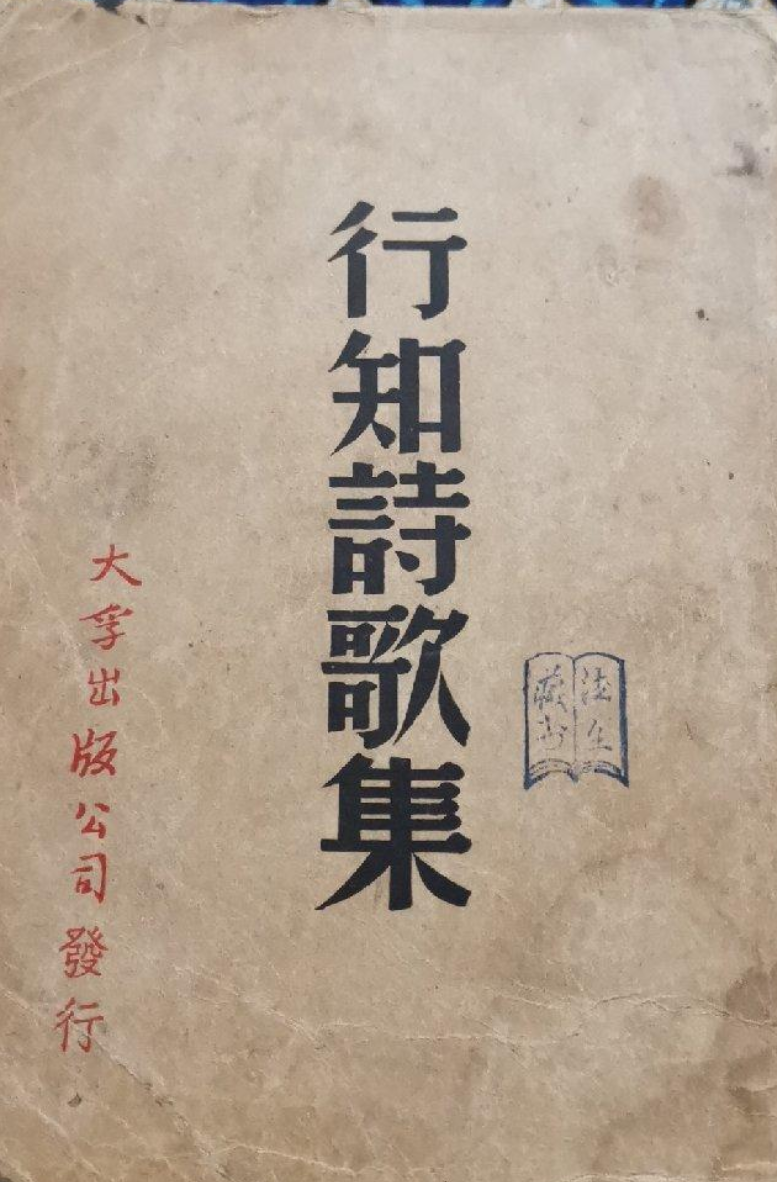 行知詩歌集
大孚出版公司發行
藏书